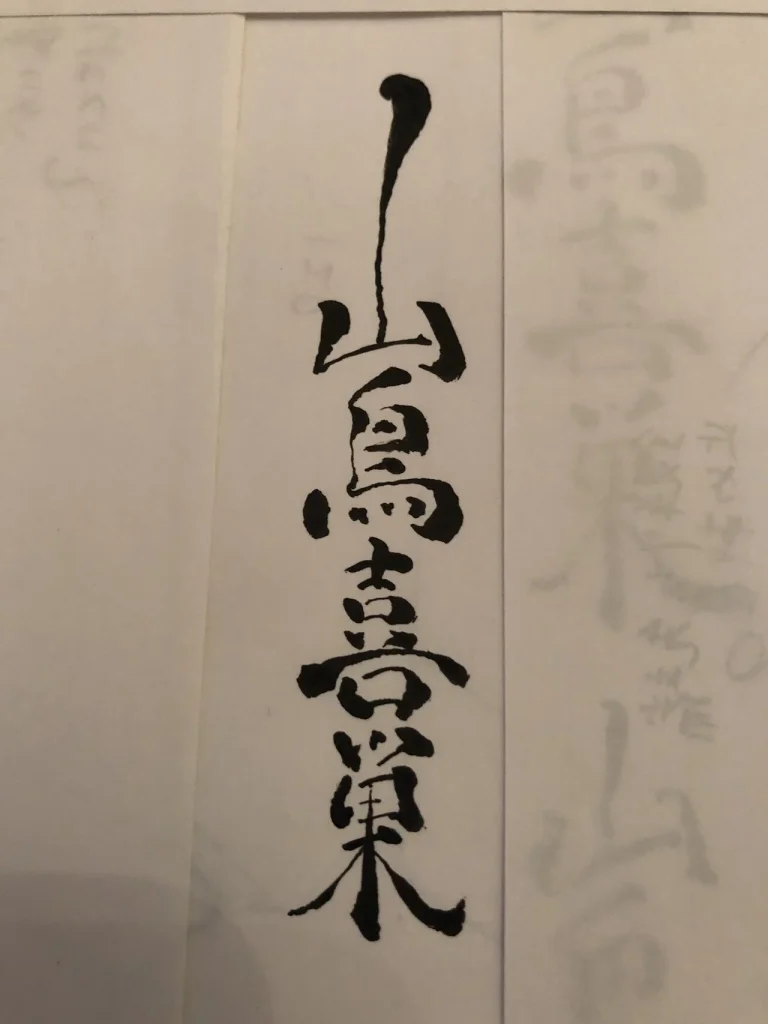 山鳥喜巣